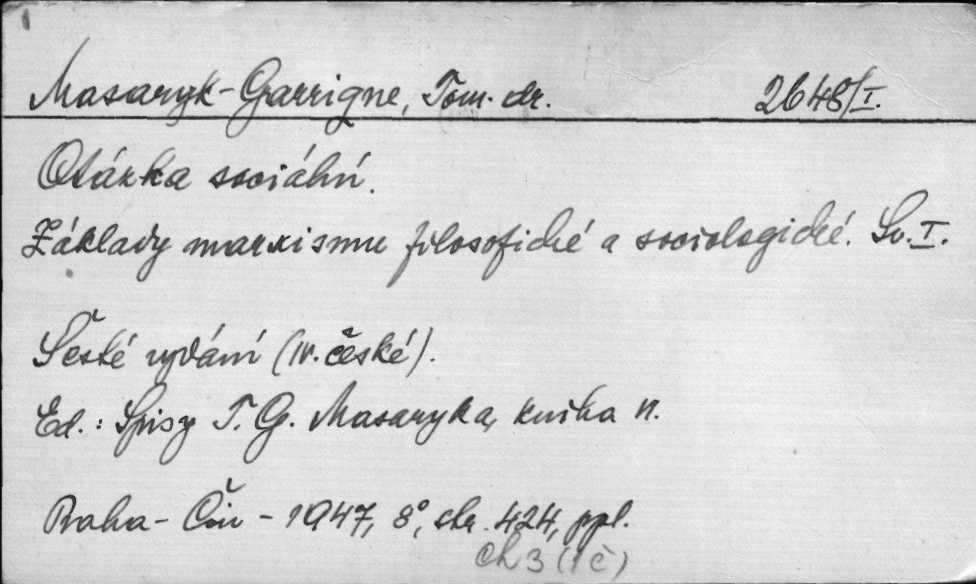 Masaryk-Garrigne, Tom. dr. 2648/I.
Otázka sociální.
Základy marxismu filosofické a sociologické. Sv. I.
Šesté vydání (IV. české).
Ed.: Spisy T. G. Masaryka, kniha
Praha - Čin - 1947, 8°, str. 424, ppl.
ch 3 (1 č)